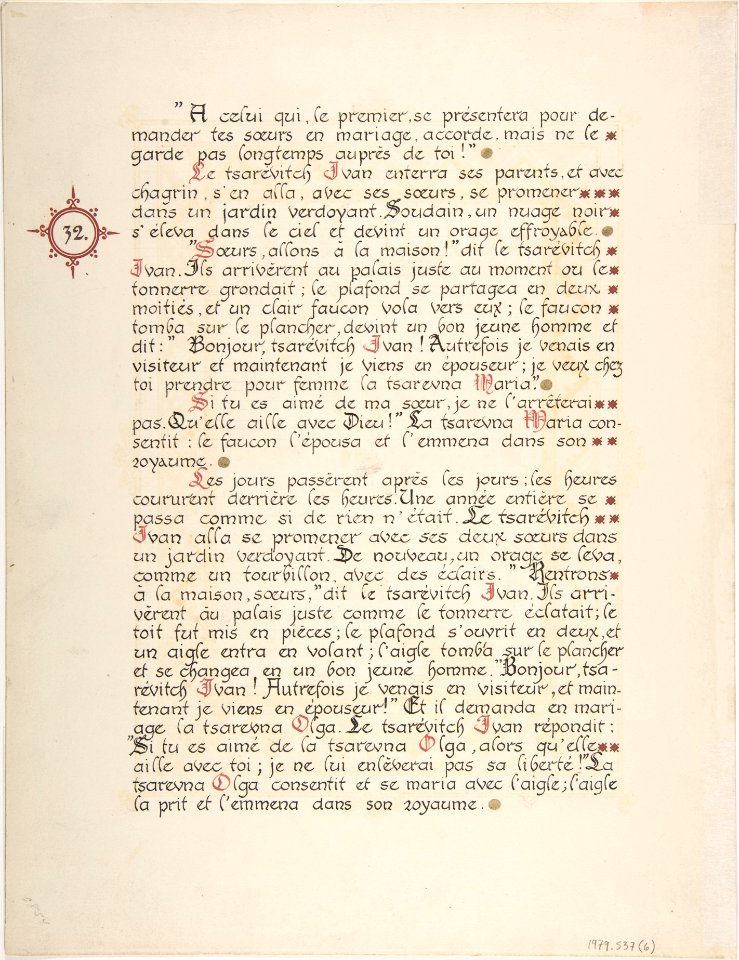 " A celui qui, le premier, se présentera pour de-
mander tes sœurs en mariage, accorde, mais ne le
garde pas longtemps auprès de toi !"
Le tsarévitch Ivan enterra ses parents, et avec
chagrin, s'en alla, avec ses sœurs, se promener
dans un jardin verdoyant. Soudain, un nuage noir
32.
s'éleva dans le ciel et devint un orage effroyable.
"Sœurs, allons à la maison !" dit le tsarévitch
Ivan. Ils arrivèrent au palais juste au moment ou le
tonnerre grondait ; le plafond se partagea en deux
moitiés, et un clair faucon vola vers eux ; le faucon
tomba sur le plancher, devint un bon jeune homme et
dit : " Bonjour, tsarévitch Ivan ! Autrefois je venais en
visiteur et maintenant je viens en épouseur ; je veux chez
toi prendre pour femme la tsarevna Maria".
Si tu es aimé de ma sœur, je ne l'arrêterai
pas. Qu'elle aille avec Dieu !" La tsarevna Maria con-
sentit : le faucon l'épousa et l'emmena dans son
royaume.
Les jours passèrent après les jours ; les heures
coururent derrière les heures. Une année entière se
passa comme si de rien n'était. Le tsarévitch
Ivan alla se promener avec ses deux sœurs dans
un jardin verdoyant. De nouveau, un orage se leva,
comme un tourbillon, avec des éclairs. " Rentrons
à la maison, sœurs," dit le tsarévitch Ivan. Ils arri-
vèrent au palais juste comme le tonnerre éclatait ; le
toit fut mis en pièces ; le plafond s'ouvrit en deux, et
un aigle entra en volant ; l'aigle tomba sur le plancher
et se changea en un bon jeune homme. "Bonjour, tsa-
révitch Ivan ! Autrefois je venais en visiteur, et main-
tenant je viens en épouseur !" Et il demanda en mari-
age la tsarevna Olga. Le tsarévitch Ivan répondit :
"Si tu es aimé de la tsarevna Olga, alors qu'elle
aille avec toi ; je ne lui enlèverai pas sa liberté !" La
tsarevna Olga consentit et se maria avec l'aigle ; l'aigle
la prit et l'emmena dans son royaume.
1979.537(6)